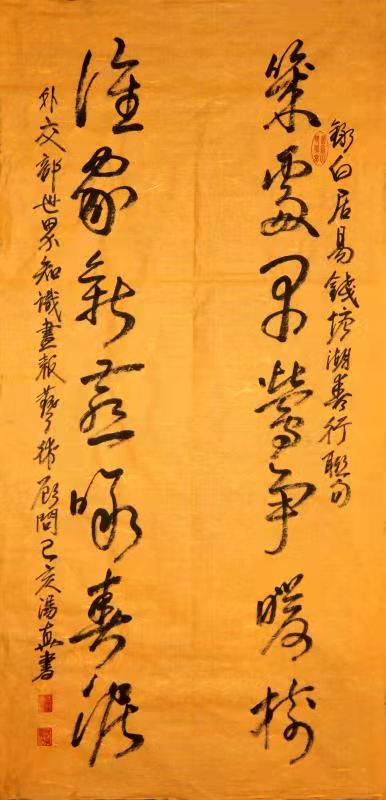 録白居易錢塘湖春行聯句
幾處早鶯争暖樹
誰家新燕啄春泥
外交部世界知識畫報藝術顧問己亥湯真書